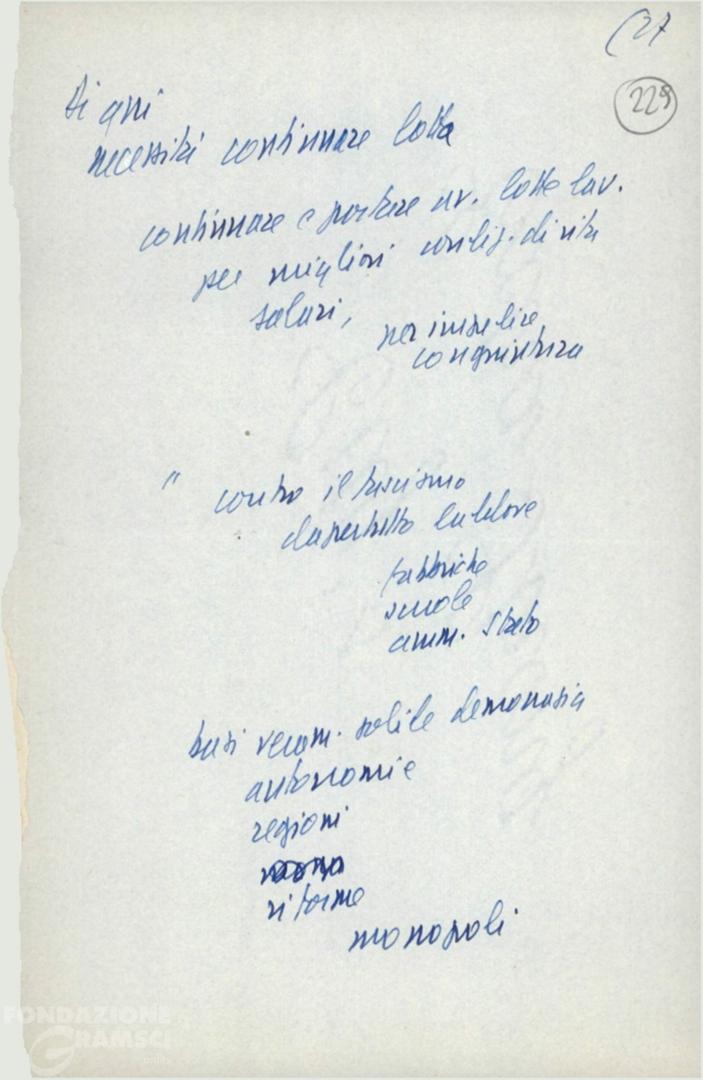 (27
229
Di qui
necessità continuare lotta
continuare e portare av. lotte lav.
per migliori condiz. di vita
salari,
per impedire
congiuntura
" contro il fascismo
dapertutto laddove
fabbriche
scuole
amm. Stato
basi veram. solide democrazia
autonomie
regioni
riforme
monopoli
FONDAZIONE
GRAMSCI